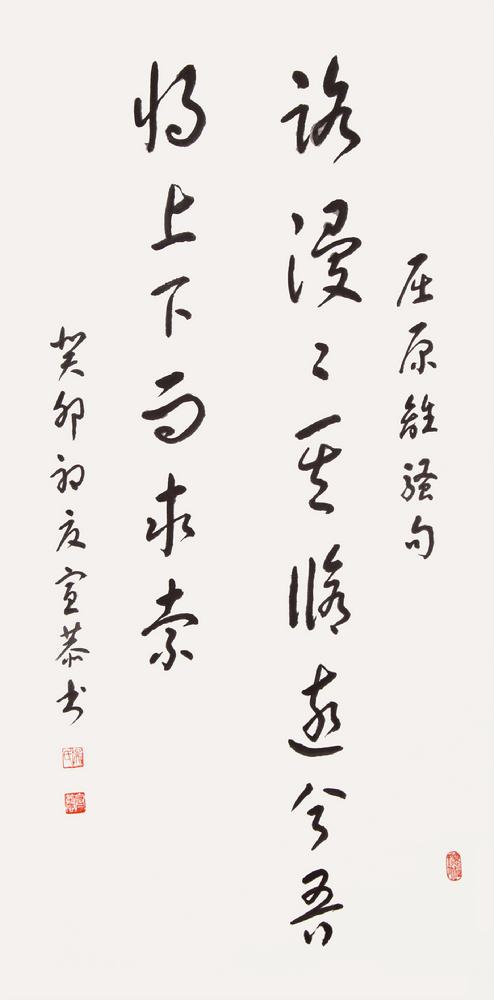 屈原離騷句
路漫〻其脩遠兮吾
將上下而求索
癸卯初夏宣恭书